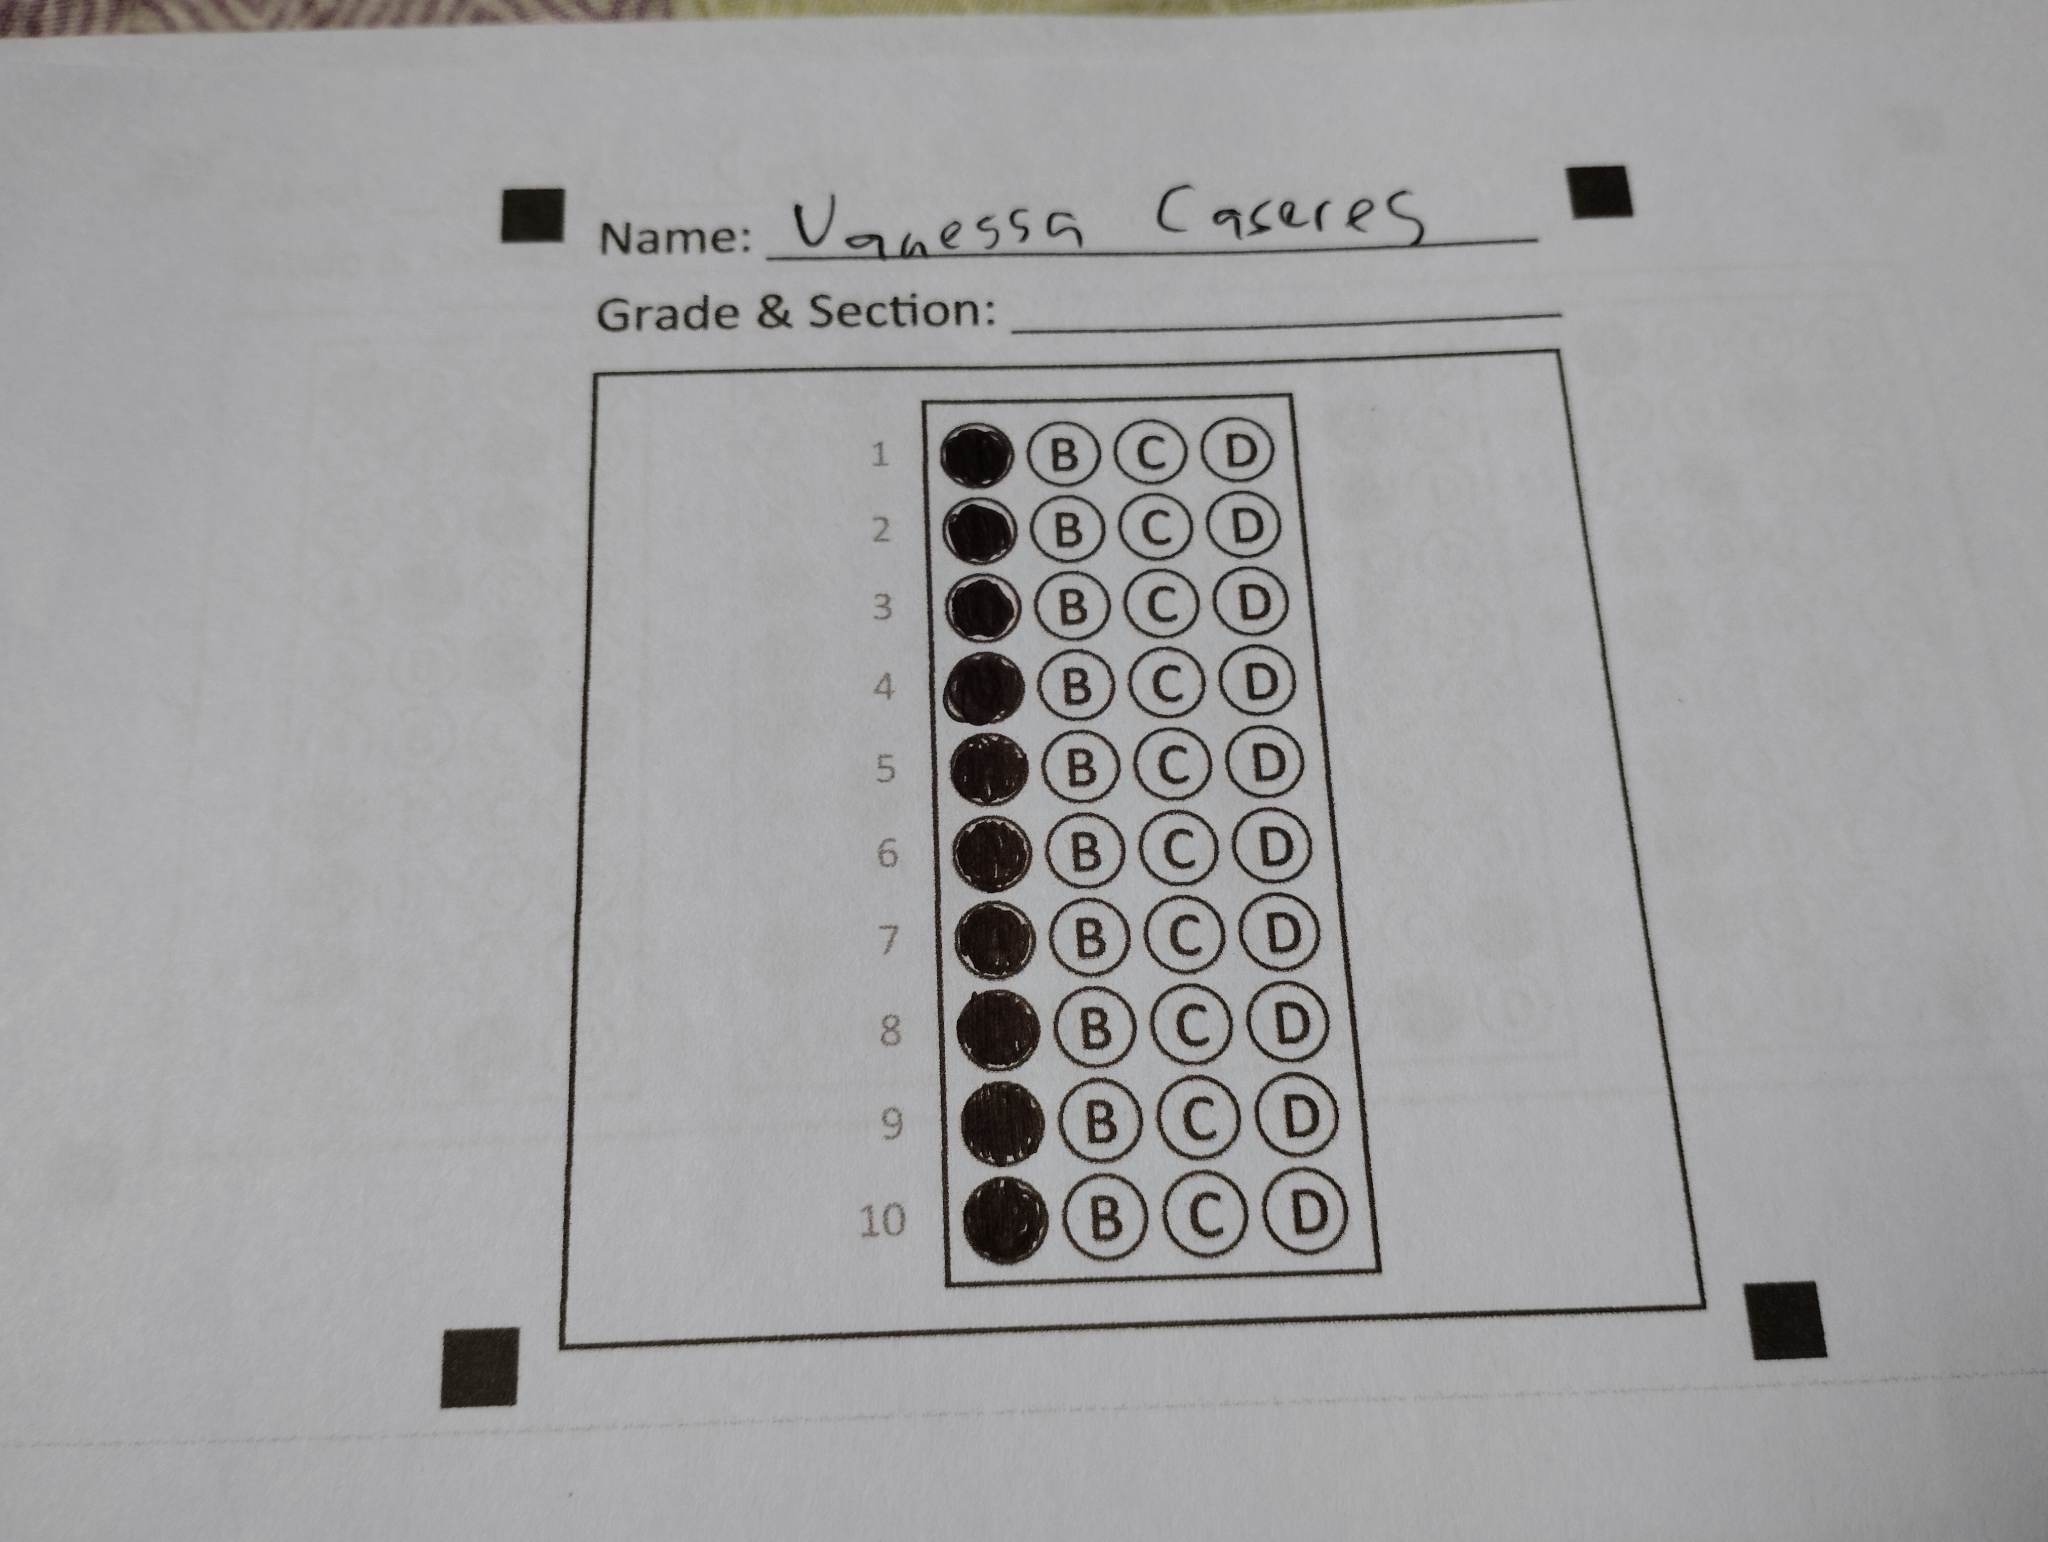 Name: Vanessa Caseres
Grade & Section:
1 B C D
2 B C D
3 B C D
4 B C D
5 B C D
6 B C D
7 B C D
8 B C D
9 B C D
10 B C D